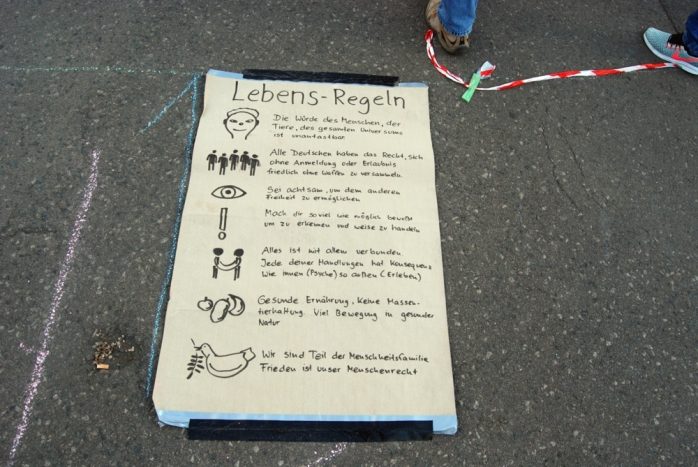 Lebens-Regeln
Die Würde des Menschen, der
Tiere, des gesamten Universums
ist unantastbar.
Alle Deutschen haben das Recht, sich
ohne Anmeldung oder Erlaubnis
friedlich ohne Waffen zu versammeln.
Sei achtsam, um dem anderen
Freiheit zu ermöglichen
Mach dir soviel wie möglich bewußt
um zu erkennen und weise zu handeln
Alles ist mit allem verbunden.
Jede deiner Handlungen hat Konsequenz
Wie innen (Psyche) so außen (Erleben)
Gesunde Ernährung, Keine Massen-
tierhaltung. Viel Bewegung in gesunder
Natur
Wir sind Teil der Menschheitsfamilie
Frieden ist unser Menschenrecht